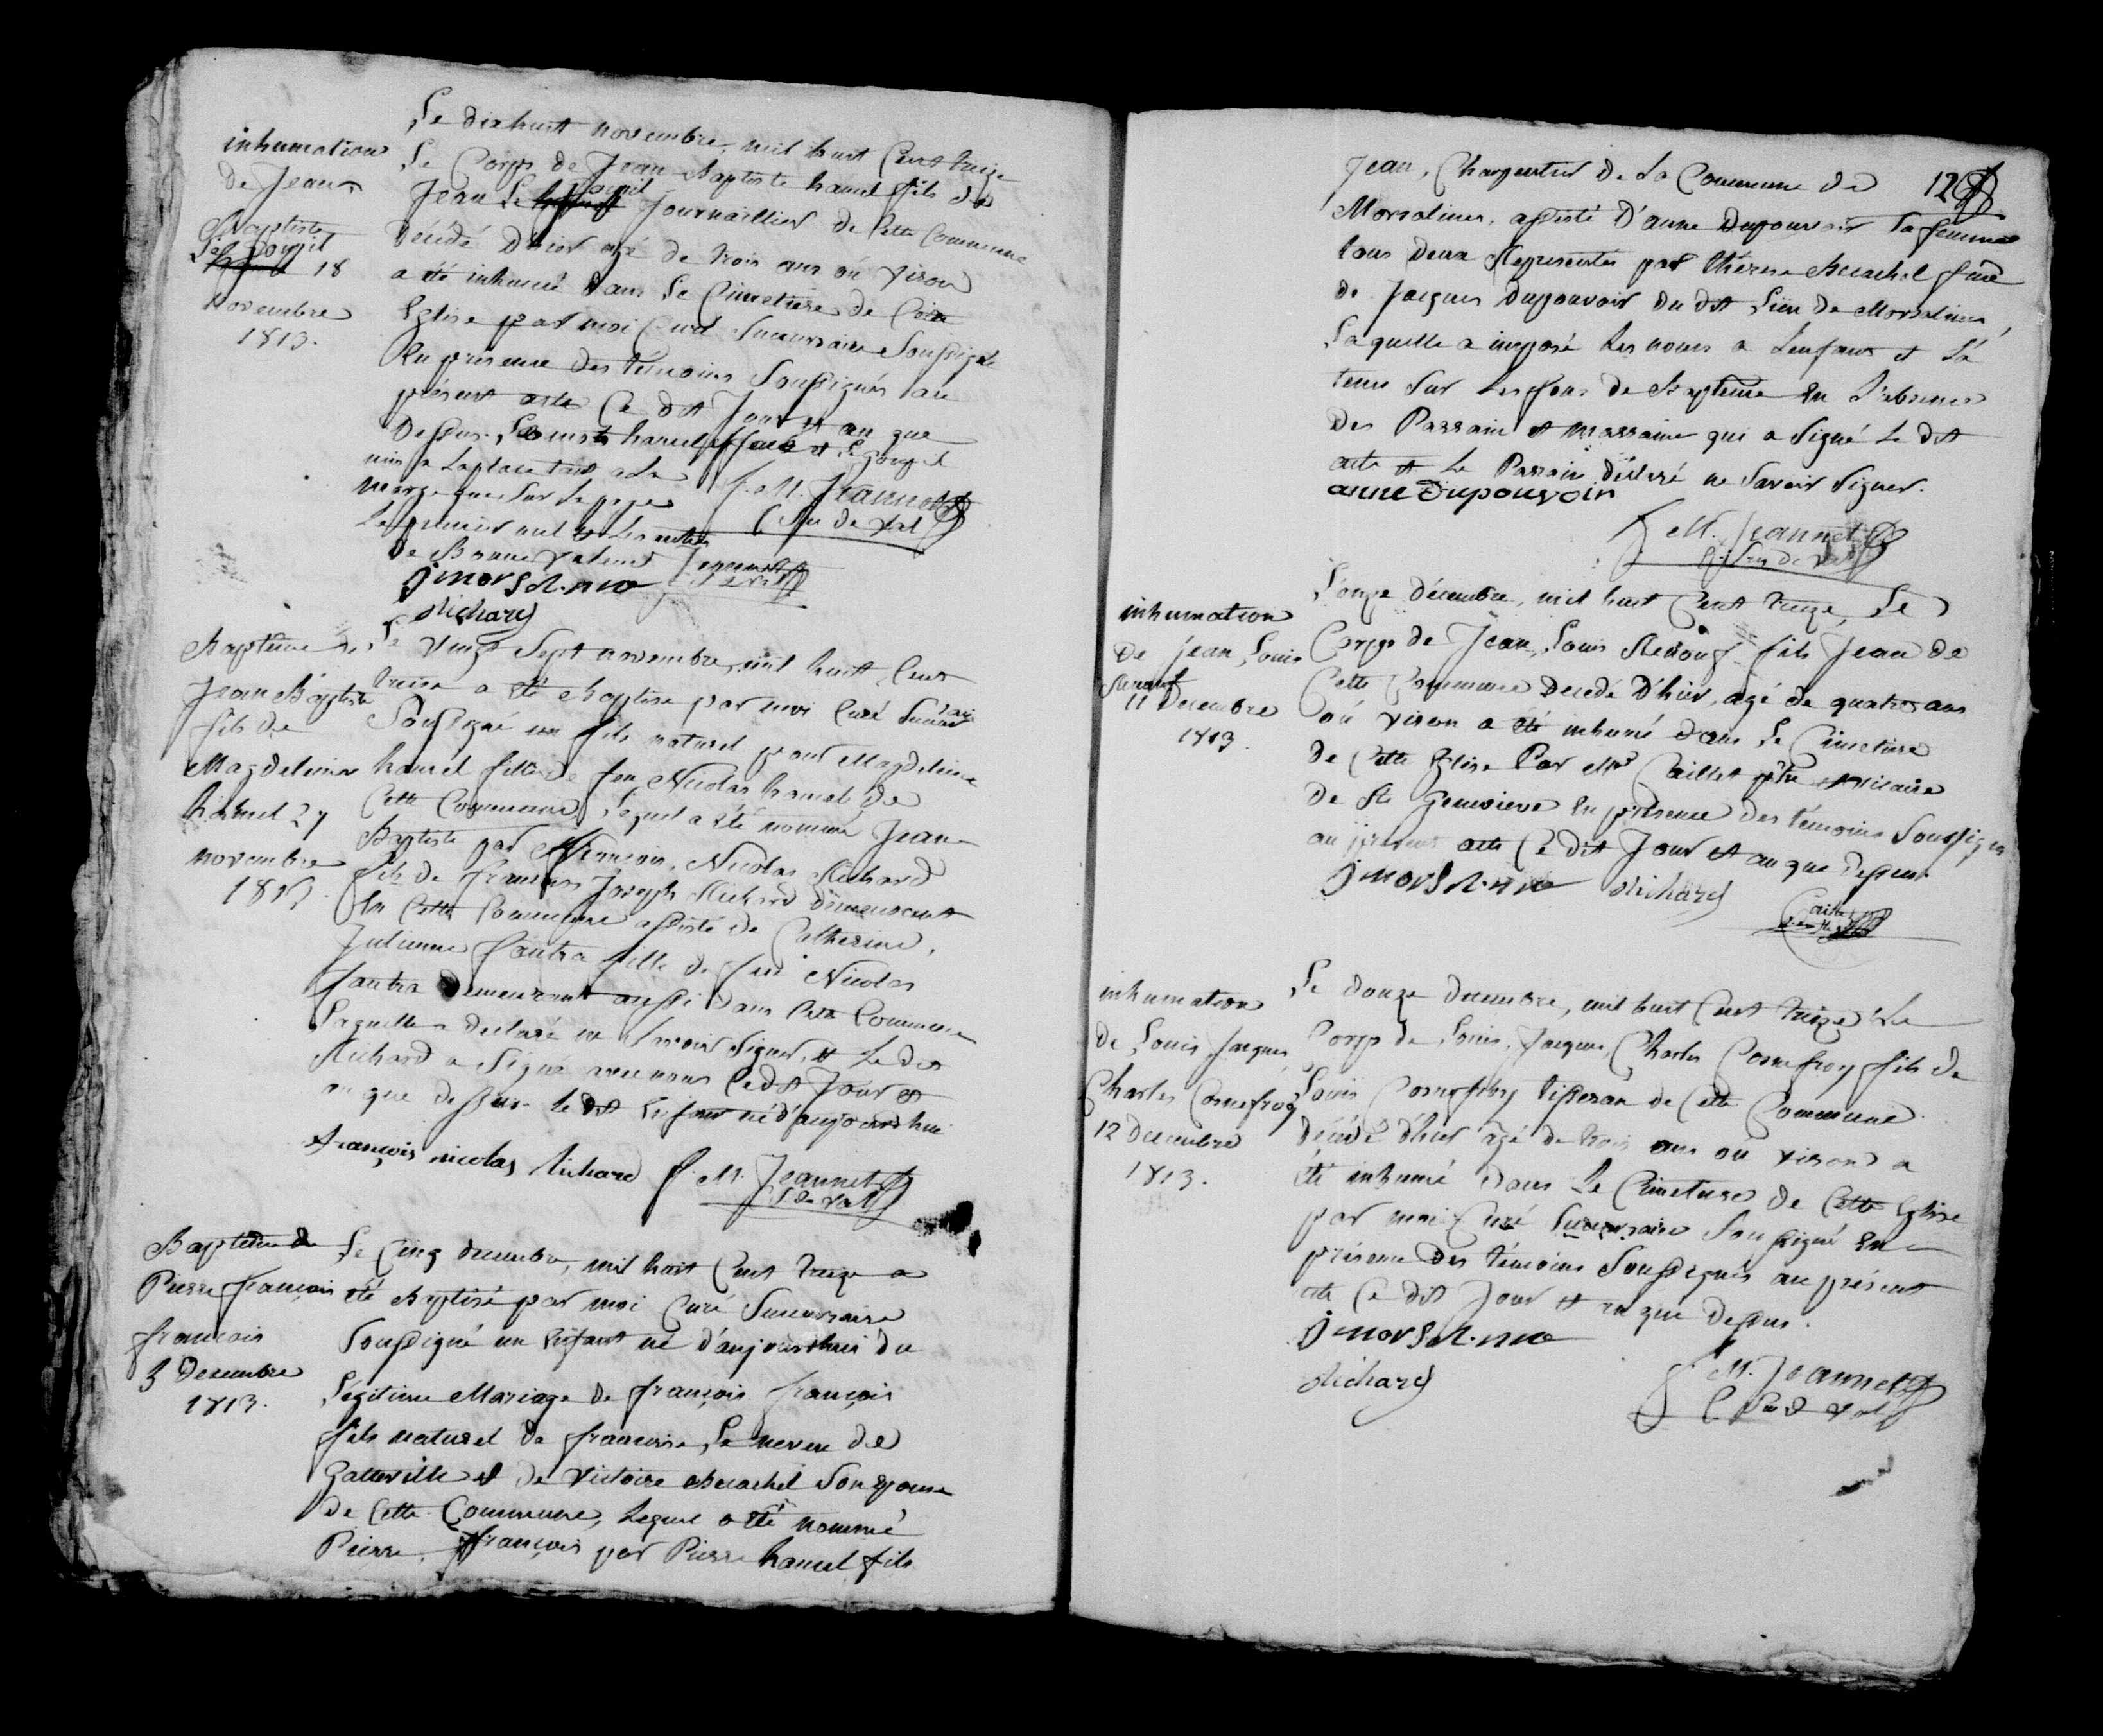 inhumation
de Jean
Baptiste
18
novembre
1813.
Le dixhuit novembre, mil huit Cent treize
Le Corps de Jean Baptiste hamel fils de
Jean Le Journaillier de Cette Commune
décédé D'hier agé de trois ans où viron
a été inhumé dans Le Cimetiere de Cette
Eglise par moi Curé Succursaire Soussigné
En présence des témoins Soussignés au
présent acte Ce dit Jour et an que
Dessus. hamel effacé et
mis a La place tant a La
marge que Sur La page
J. M. Jeannet
de Bonne valeur Jeannet
Jmorsaline
Richard
Baptême de
Jean Baptiste
fils de
Magdeleine
hamel 27
novembre
1813.
Le vingt Sept novembre, mil huit Cent
treize a été Baptisé par moi Curé
Soussigné un fils naturel pour Magdeleine
hamel fille de feu Nicolas hamel de
Cette Commune, Lequel a été nommé Jean
Baptiste par François, Nicolas Richard
fils de francois Joseph Richard demeurant
En Cette Commune assisté de Catherine,
Julienne fautra fille de feu Nicolas
fautra Demeurant aussi Dans Cette Commune
Laquelle a déclaré ne Savoir Signer, et Le dit
Richard a Signé avec nous Cedit Jour et
an que dessus. Le dit Enfant né d'aujourdhui
françois nicolas Richard J. M. Jeannet
Baptême de
Pierre françois
françois
5 Decembre
1813.
Le Cinq decembre, mil huit Cent treize a
été Baptisé par moi Curé Succursaire
Soussigné un Enfant né d'aujourdhui du
Légitime Mariage de françois françois
fils naturel de francoise Le neveu de
Gatteville et de Victoire Burachel Son Epouse
de Cette Commune, Lequel a été nommé
Pierre, françois par Pierre hamel fils
12
Jean, Charpentier de La Commune de
Morsalines, assisté D'anne Dupouvoir Sa femme
tous Deux Representés par thérese Burachel feme
de Jacques Dupouvoir du dit Lieu de Morsalines,
Laquelle a imposé Les noms a Lenfant et L'a
tenu Sur Les fons de Baptême En L'absence
Des Parrain et marraine qui a Signé Le dit
acte et Le Parrain déclaré ne Savoir Signer.
anne Dupouvoir
J. M. Jeannet
inhumation
De Jean, Louis
Renouf
11 Decembre
1813.
L'onze décembre, mil huit Cent treize, Le
Corps de Jean, Louis Renouf fils Jean de
Cette Commune Decedé D'hier, agé de quatre ans
où viron a été inhumé dans Le Cimetiere
de Cette Eglise Par Mr Caillet ptre vicaire
de Ste Genevieve En présence des témoins Soussignés
au présent acte Ce dit Jour et an que Dessus.
Jmorsaline Richard
inhumation
de Louis Jacques
Charles Cosnefroy
12 Decembre
1813.
Le Douze Decembre, mil huit Cent treize Le
Corps de Louis, Jacques, Charles Cosnefroy fils de
Louis Cosnefroy tisseran de Cette Commune
décédé d'hier agé de trois ans où viron a
été inhumé dans Le Cimetiere de Cette Eglise
par moi Curé Succursaire Soussigné En
présence Des témoins Soussignés au présent
acte Ce dit Jour et an que Dessus.
Jmorsaline
Richard
J. M. Jeannet